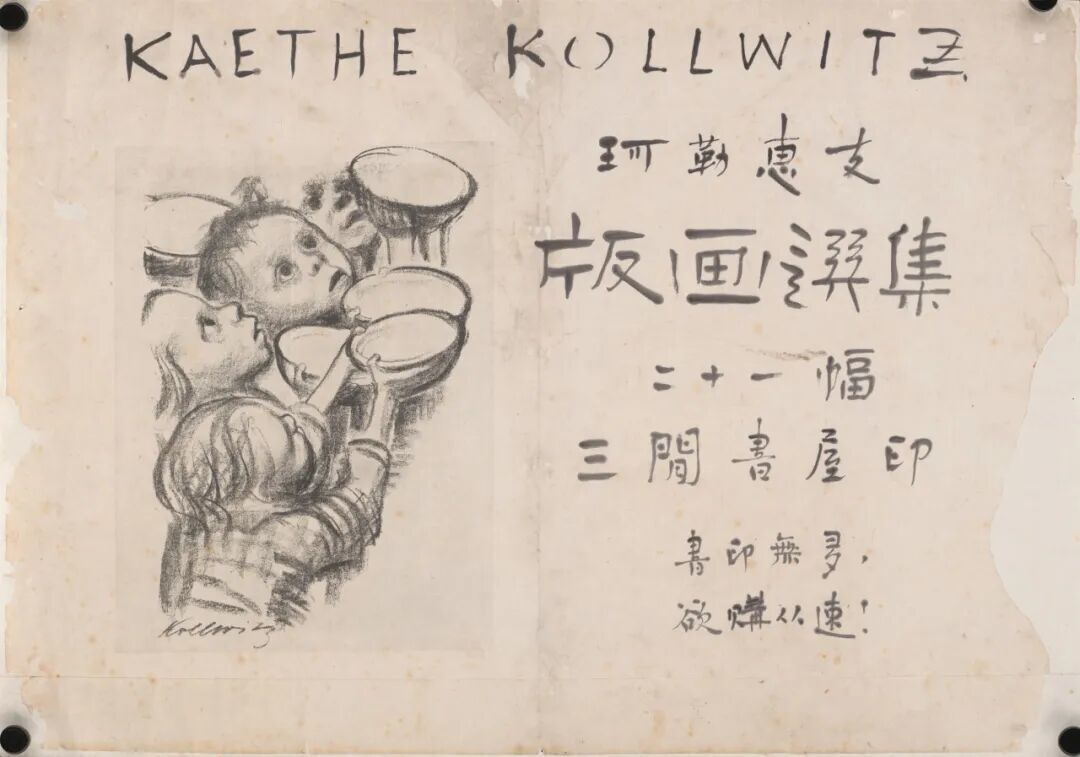 KAETHE KOLLWITZ
珂勒惠支
版画選集
二十一幅
三閒書屋印
書印無多，
欲購从速！
Kollwitz